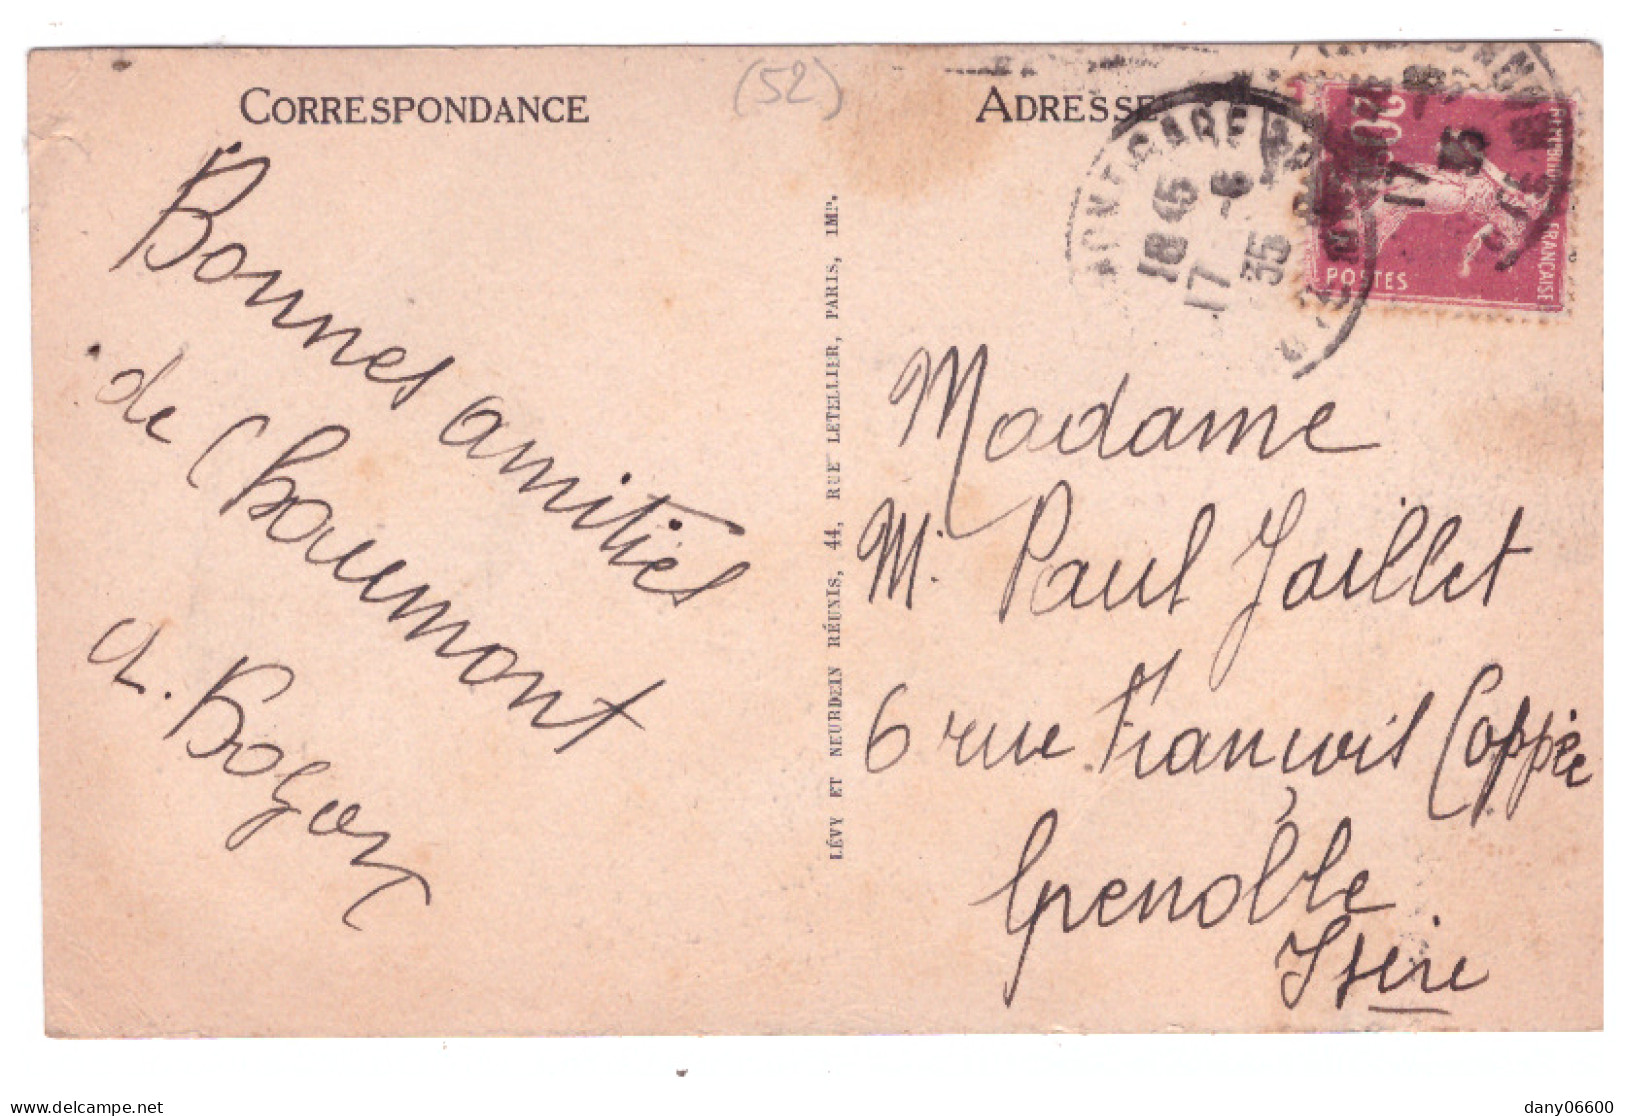 (52)
CORRESPONDANCE
Bonnes amitiés
de Chaumont
LÉVY ET NEURDEIN RÉUNIS, 44, RUE LETELLIER, PARIS, IMP.
ADRESSE
18 45
17 -6
35
20c
17
35
POSTES
FRANÇAISE
Madame
M. Paul Jaillet
6 rue François Coppée
Grenoble
Isère
www.delcampe.net
dany06600